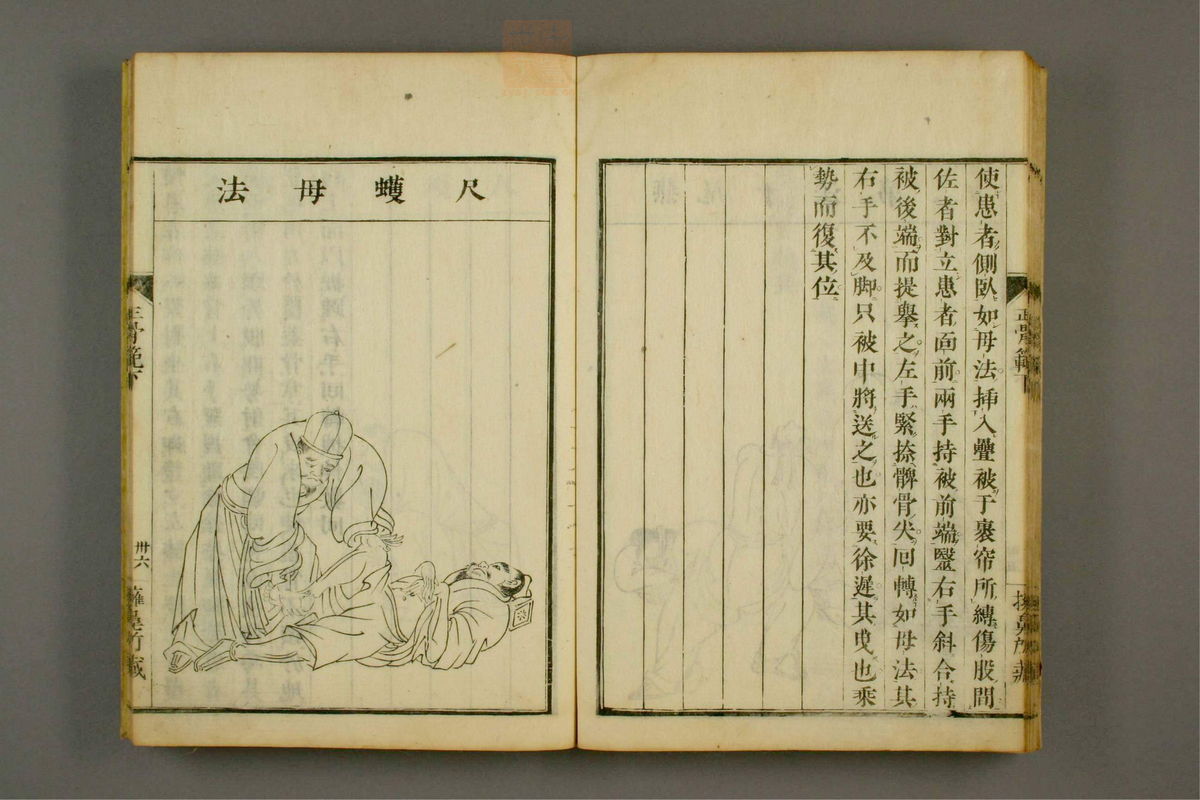 使患者側臥如母法挿入疊被于裹帘所縛傷股間
佐者對立患者面前兩手持被前端瞖右手斜合持
被後端而提擧之左手緊捺髀骨尖回轉如母法其
右手不及脚只被中將送之也亦要徐遲其曵也乘
勢而復其位
正骨範下
尺蠖母法
正骨範下
卅六